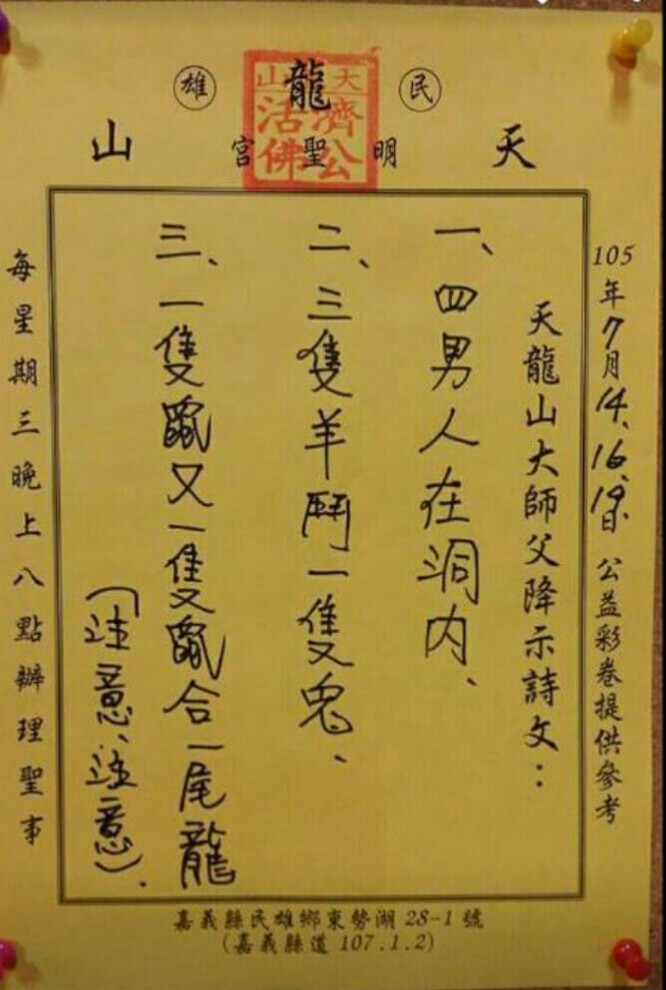 民雄
天龍山
明聖宮
天山
濟公
活佛
105年7月14、16、19日 公益彩卷提供參考
天龍山大師父降示詩文：
一、四男人在洞內、
二、三隻羊鬥一隻兔、
三、一隻鼠又一隻鼠合一尾龍
(注意、注意).
每星期三晚上八點辦理聖事
嘉義縣民雄鄉東勢湖28-1號
(嘉義縣道107.1.2)